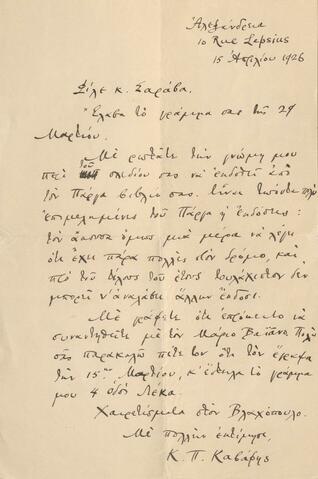 Ἀλεξάνδρεια
10 Rue Lepsius
15 Ἀπριλίου 1926
Φίλε κ. Σαράβα.
Ἔλαβα τὸ γράμμα σας τῆς 29
Μαρτίου.
Μὲ ρωτᾶτε τὴν γνώμη μου
περὶ τοῦ σχεδίου σας νὰ ἐκδοθῇ ἀπὸ
τὸν Πάργα βιβλίο σας. Εἶναι πολὺ
ἐπιμελημένες τοῦ Πάργα ἡ ἐκδόσεις·
τὸν ἄκουσα ὅμως μιὰ μέρα νὰ λέγη
ὅτι ἔχει πάρα πολλὲς στὸν δρόμο, καὶ
πρὸ τοῦ τέλους τοῦ ἔτους τουλάχιστον δὲν
μπορεῖ ν' ἀναλάβη ἄλλην ἔκδοσι.
Μὲ γράφετε ὅτι ἐπρόκειτο νὰ
συναντηθῆτε μὲ τὸν Μάριο Βαϊάνο. Πολὺ
σᾶς παρακαλῶ πέτε τον ὅτι τὸν ἔγραψα
τὴν 15ην Μαρτίου, κ' ἔστειλα τὸ γράμμα
μου 4 ὁδὸς Λέκα.
Χαιρετίσματα στὸν Βλαχόπουλο.
Μὲ πολλὴν ἐκτίμησι,
Κ. Π. Καβάφης